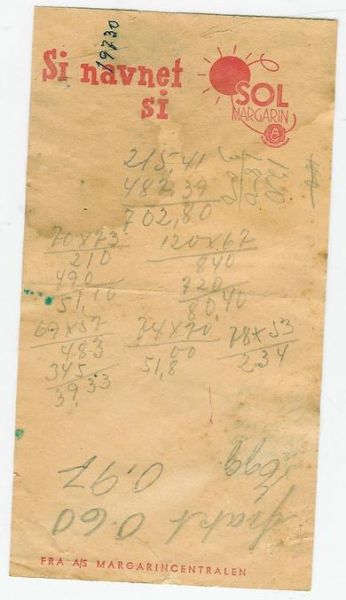 19730
Si navnet
si
SOL
MARGARIN
215,41
487,39
702,80
70 x 73
210
490
51,10
120 x 67
840
720
80,40
69 x 57
483
345
39,33
74 x 70
00
51,8
78 x 53
2 34
Egg
0,97
frakt 0.60
FRA A/S MARGARINCENTRALEN